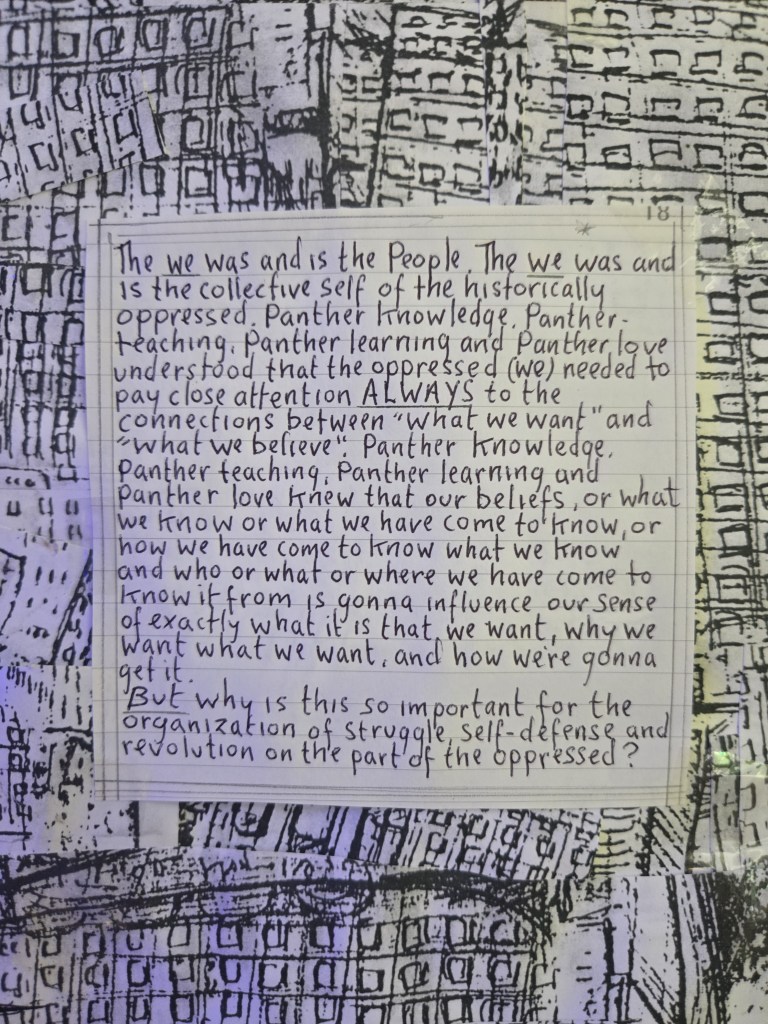 18
The we was and is the People. The we was and
is the collective self of the historically
oppressed. Panther Knowledge, Panther-
teaching, Panther learning and Panther love
understood that the oppressed (we) needed to
pay close attention ALWAYS to the
connections between "what we want" and
"what we believe". Panther Knowledge,
Panther teaching, Panther learning and
Panther love knew that our beliefs, or what
we know or what we have come to know, or
how we have come to know what we know
and who or what or where we have come to
know it from is gonna influence our sense
of exactly what it is that we want, why we
want what we want, and how we're gonna
get it.
But why is this so important for the
organization of struggle, self-defense and
revolution on the part of the oppressed?